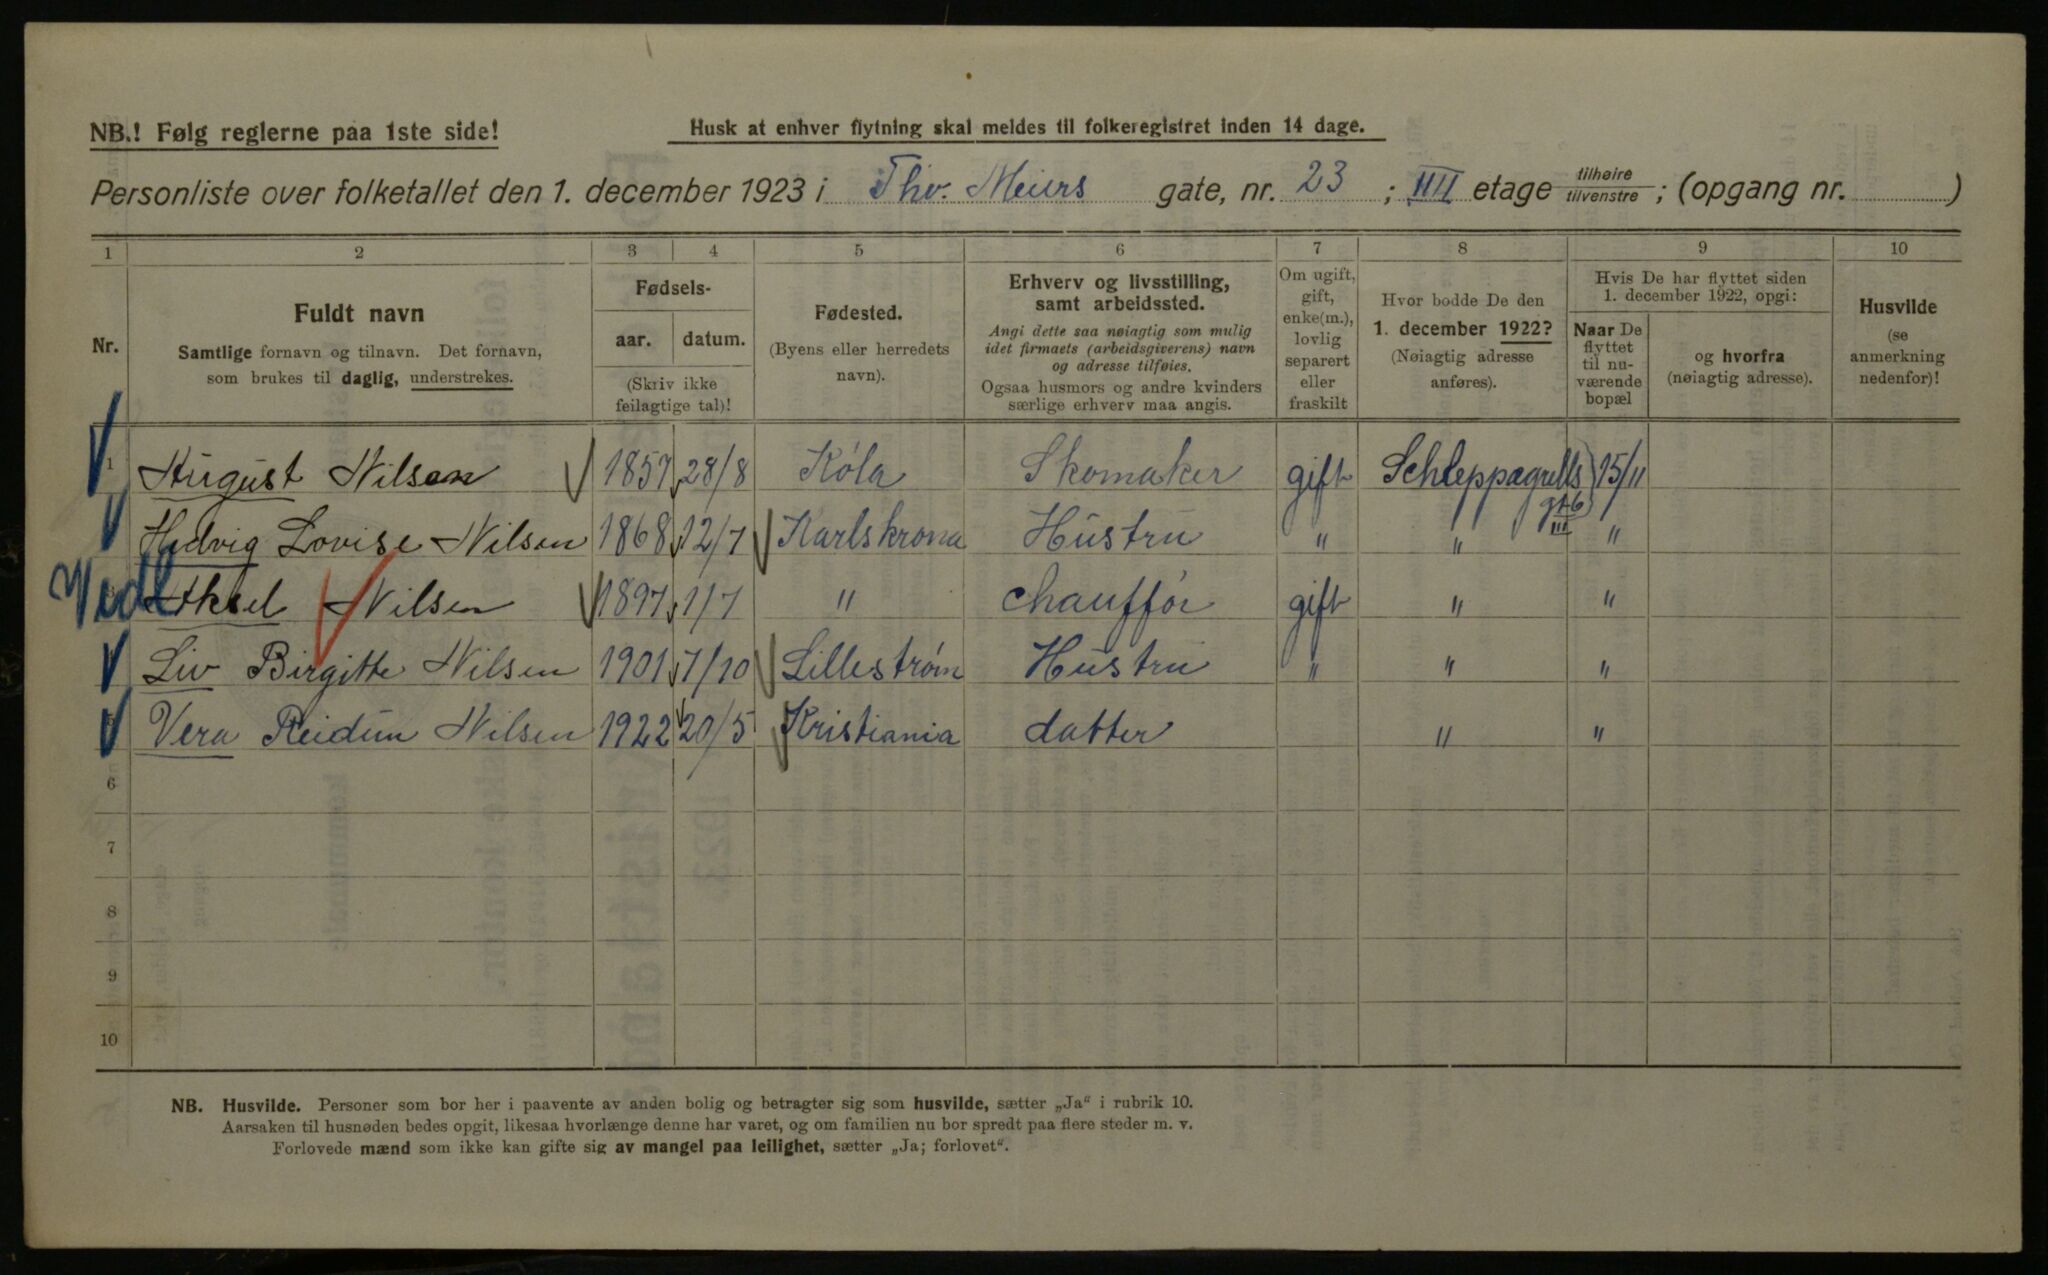 NB.! Følg reglerne paa 1ste side!
Husk at enhver flytning skal meldes til folkeregistret inden 14 dage.
Personliste over folketallet den 1. december 1923 i Thv. Meiers gate, nr. 23 ; IIII etage tilhøire tilvenstre ; (opgang nr. )
1 2 3 4 5 6 7 8 9 10
Nr.
Fuldt navn
Samtlige fornavn og tilnavn. Det fornavn,
som brukes til daglig, understrekes.
Fødsels-
aar. datum.
(Skriv ikke
feilagtige tal)!
Fødested.
(Byens eller herredets
navn).
Erhverv og livsstilling,
samt arbeidssted.
Angi dette saa nøiagtig som mulig
idet firmaets (arbeidsgiverens) navn
og adresse tilføies.
Ogsaa husmors og andre kvinders
særlige erhverv maa angis.
Om ugift,
gift,
enke(m.),
lovlig
separert
eller
fraskilt
Hvor bodde De den
1. december 1922?
(Nøiagtig adresse
anføres).
Hvis De har flyttet siden
1. december 1922, opgi:
Naar De
flyttet
til nu-
værende
bopæl
og hvorfra
(nøiagtig adresse).
Husvilde
(se
anmerkning
nedenfor)!
1 August Nilsen 1857 28/8 Køla Skomaker gift Schleppegrells 15/11
gt 6
III
Hedvig Lovise Nilsen 1868 12/7 Karlskrona Hustru " " "
Vedl
3 Aksel Nilsen 1897 1/7 " chauffør gift " "
Liv Birgitte Nilsen 1901 7/10 Lillestrøm Hustru " " "
5 Vera Reidun Nilsen 1922 20/5 Kristiania datter " "
6
7
8
9
10
NB. Husvilde. Personer som bor her i paavente av anden bolig og betragter sig som husvilde, sætter „Ja“ i rubrik 10.
Aarsaken til husnøden bedes opgit, likesaa hvorlænge denne har varet, og om familien nu bor spredt paa flere steder m. v.
Forlovede mænd som ikke kan gifte sig av mangel paa leilighet, sætter „Ja; forlovet“.